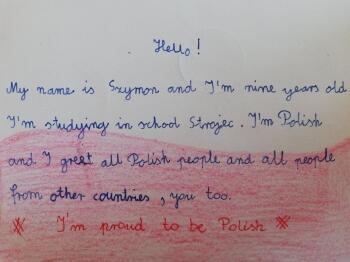 Hello!
My name is Szymon and I'm nine years old
I'm studying in school Strojec. I'm Polish
and I greet all Polish people and all people
from other countries, you too.
I'm proud to be Polish